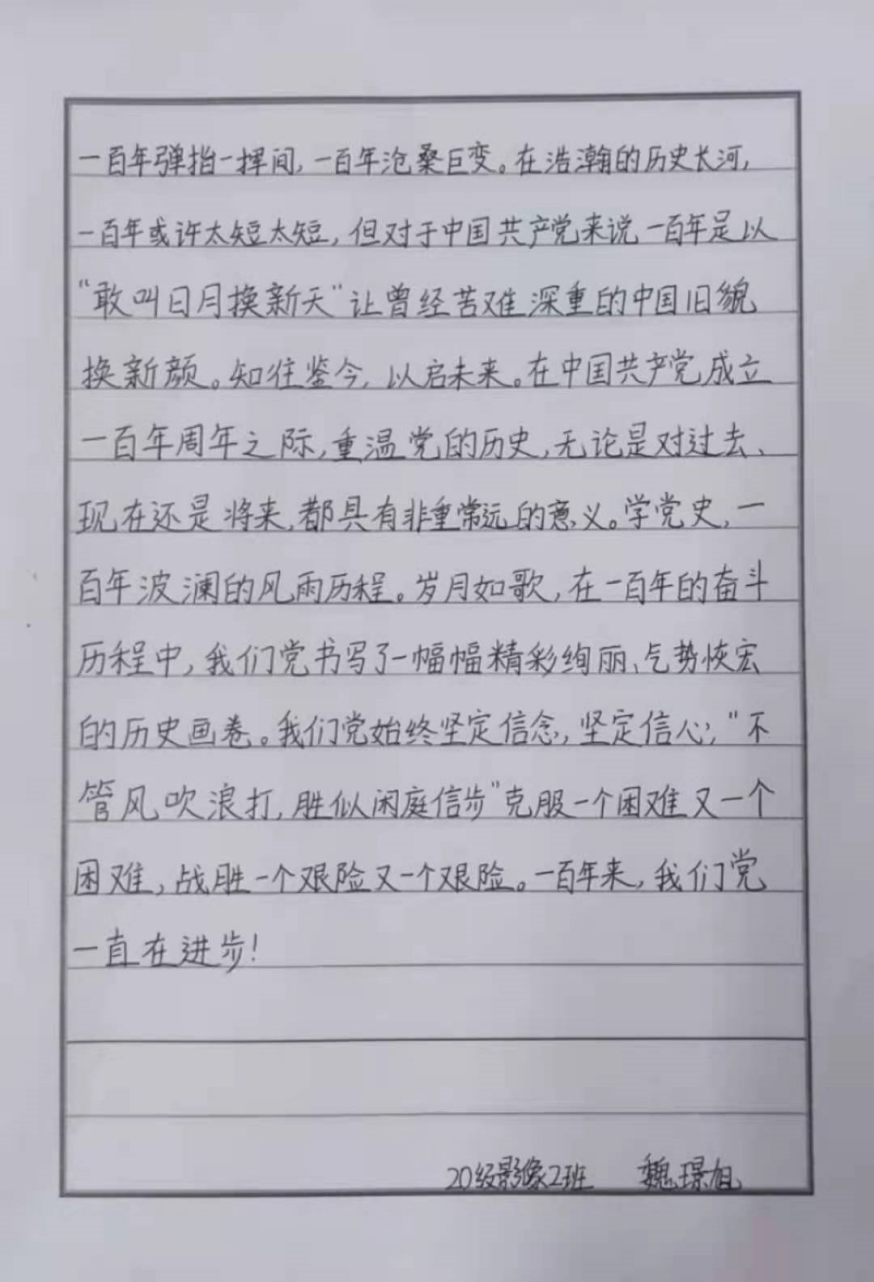 一百年弹指一挥间，一百年沧桑巨变。在浩瀚的历史长河，
一百年或许太短太短，但对于中国共产党来说一百年足以
“敢叫日月换新天”让曾经苦难深重的中国旧貌
换新颜。知往鉴今，以启未来。在中国共产党成立
一百年周年之际，重温党的历史，无论是对过去、
现在还是将来，都具有非重常远的意义。学党史，一
百年波澜的风雨历程。岁月如歌，在一百年的奋斗
历程中，我们党书写了一幅幅精彩绚丽、气势恢宏
的历史画卷。我们党始终坚定信念，坚定信心，“不
管风吹浪打，胜似闲庭信步”克服一个困难又一个
困难，战胜一个艰险又一个艰险。一百年来，我们党
一直在进步！
20级影像2班 魏璟旭